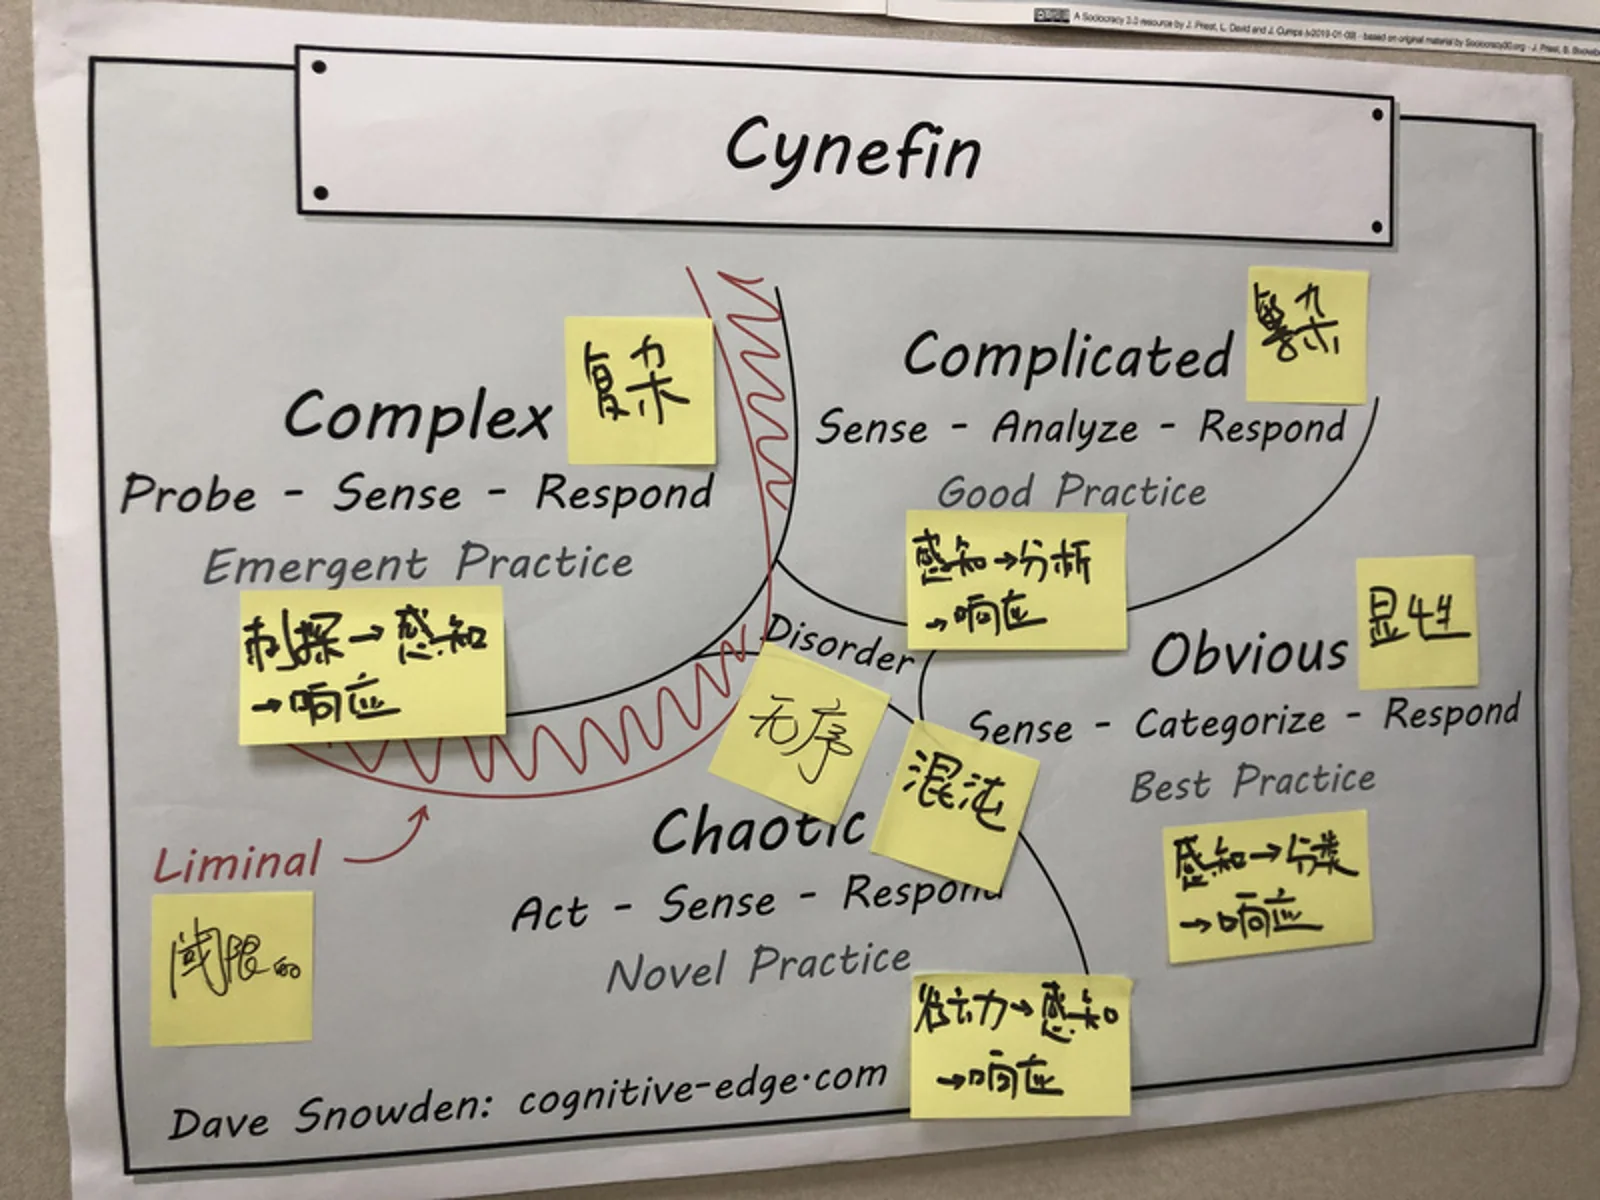 A Sociocracy 3.0 resource by J. Priest, L. David and J. Cumps (v2019-01-09) - based on original material by Sociocracy30.org - J. Priest, B. Bockelbrink
Cynefin
Complex
复杂
Probe - Sense - Respond
Emergent Practice
刺探→感知
→响应
Complicated
繁杂
Sense - Analyze - Respond
Good Practice
感知→分析
→响应
Disorder
无序
Obvious
显性
Sense - Categorize - Respond
Best Practice
感知→分类
→响应
Liminal
阈限的
Chaotic
混沌
Act - Sense - Respond
Novel Practice
→感知
→响应
Dave Snowden: cognitive-edge.com